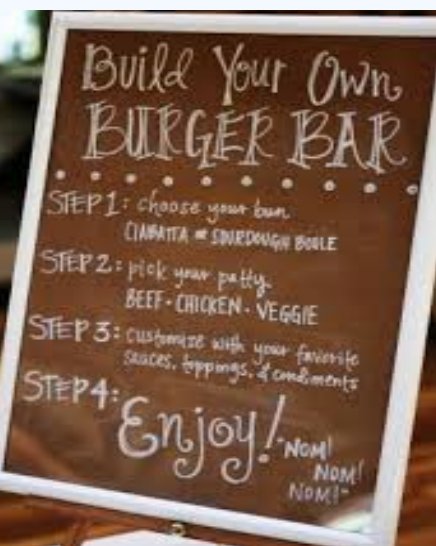 Build Your Own
BURGER BAR
STEP 1: choose your bun
CIABATTA or SOURDOUGH BOULE
STEP 2: pick your patty
BEEF · CHICKEN · VEGGIE
STEP 3: customize with your favorite
sauces, toppings, & condiments
STEP 4:
Enjoy! "NOM!
NOM!
NOM!"